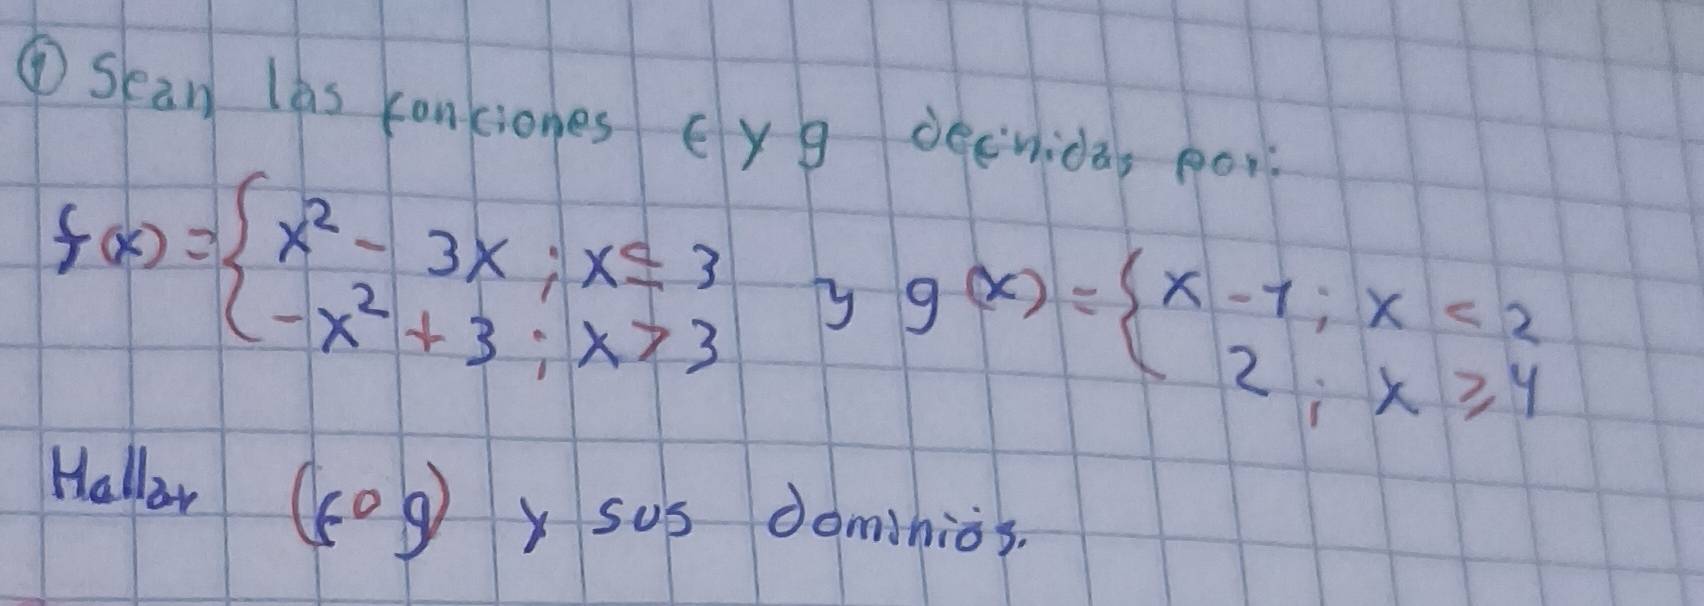 ① Sean las funciones f y g definidas por:
f(x) = { x² - 3x ; x ≤ 3 y g(x) = { x - 1 ; x < 2
-x² + 3 ; x > 3 2 ; x ≥ 4
Hallar (f∘g) y sus dominios.